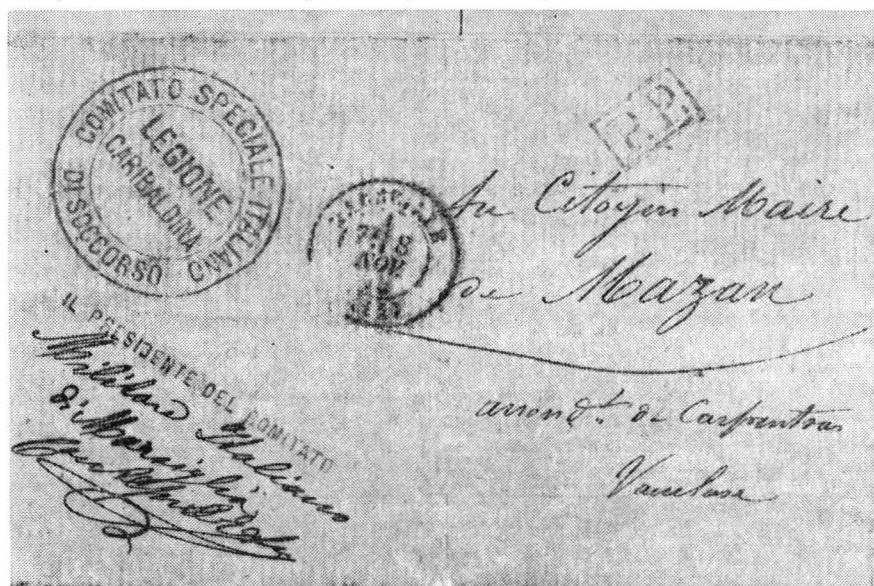 COMITATO SPECIALE ITALIANO
DI SOCCORSO
LEGIONE
GARIBALDINA
P.P.
MARSEILLE
8
NOV.
Au Citoyen Maire
de Mazan
arrondt. de Carpentras
Vaucluse
IL PRESIDENTE DEL COMITATO
Militare Italiano
di Marsiglia